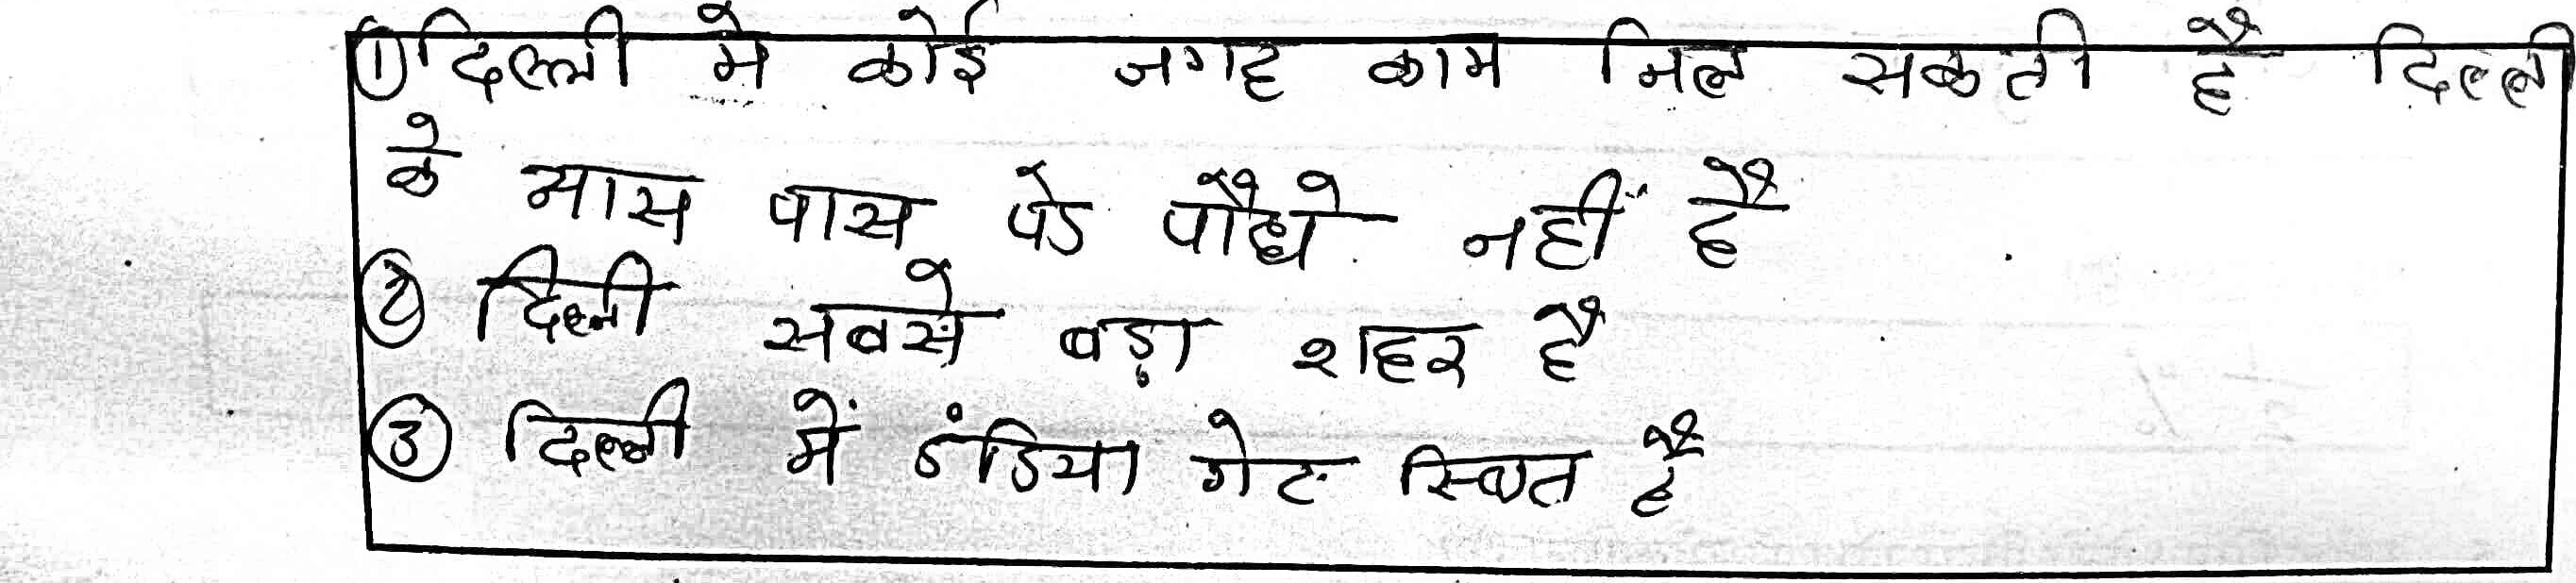 ① दिल्ली मे कोई जगह काम मिल सकती है दिल्ली
के आस पास पेड पौधे नहीं है
② दिल्ली सबसे बड़ा शहर है
③ दिल्ली में इंडिया गेट स्थित है